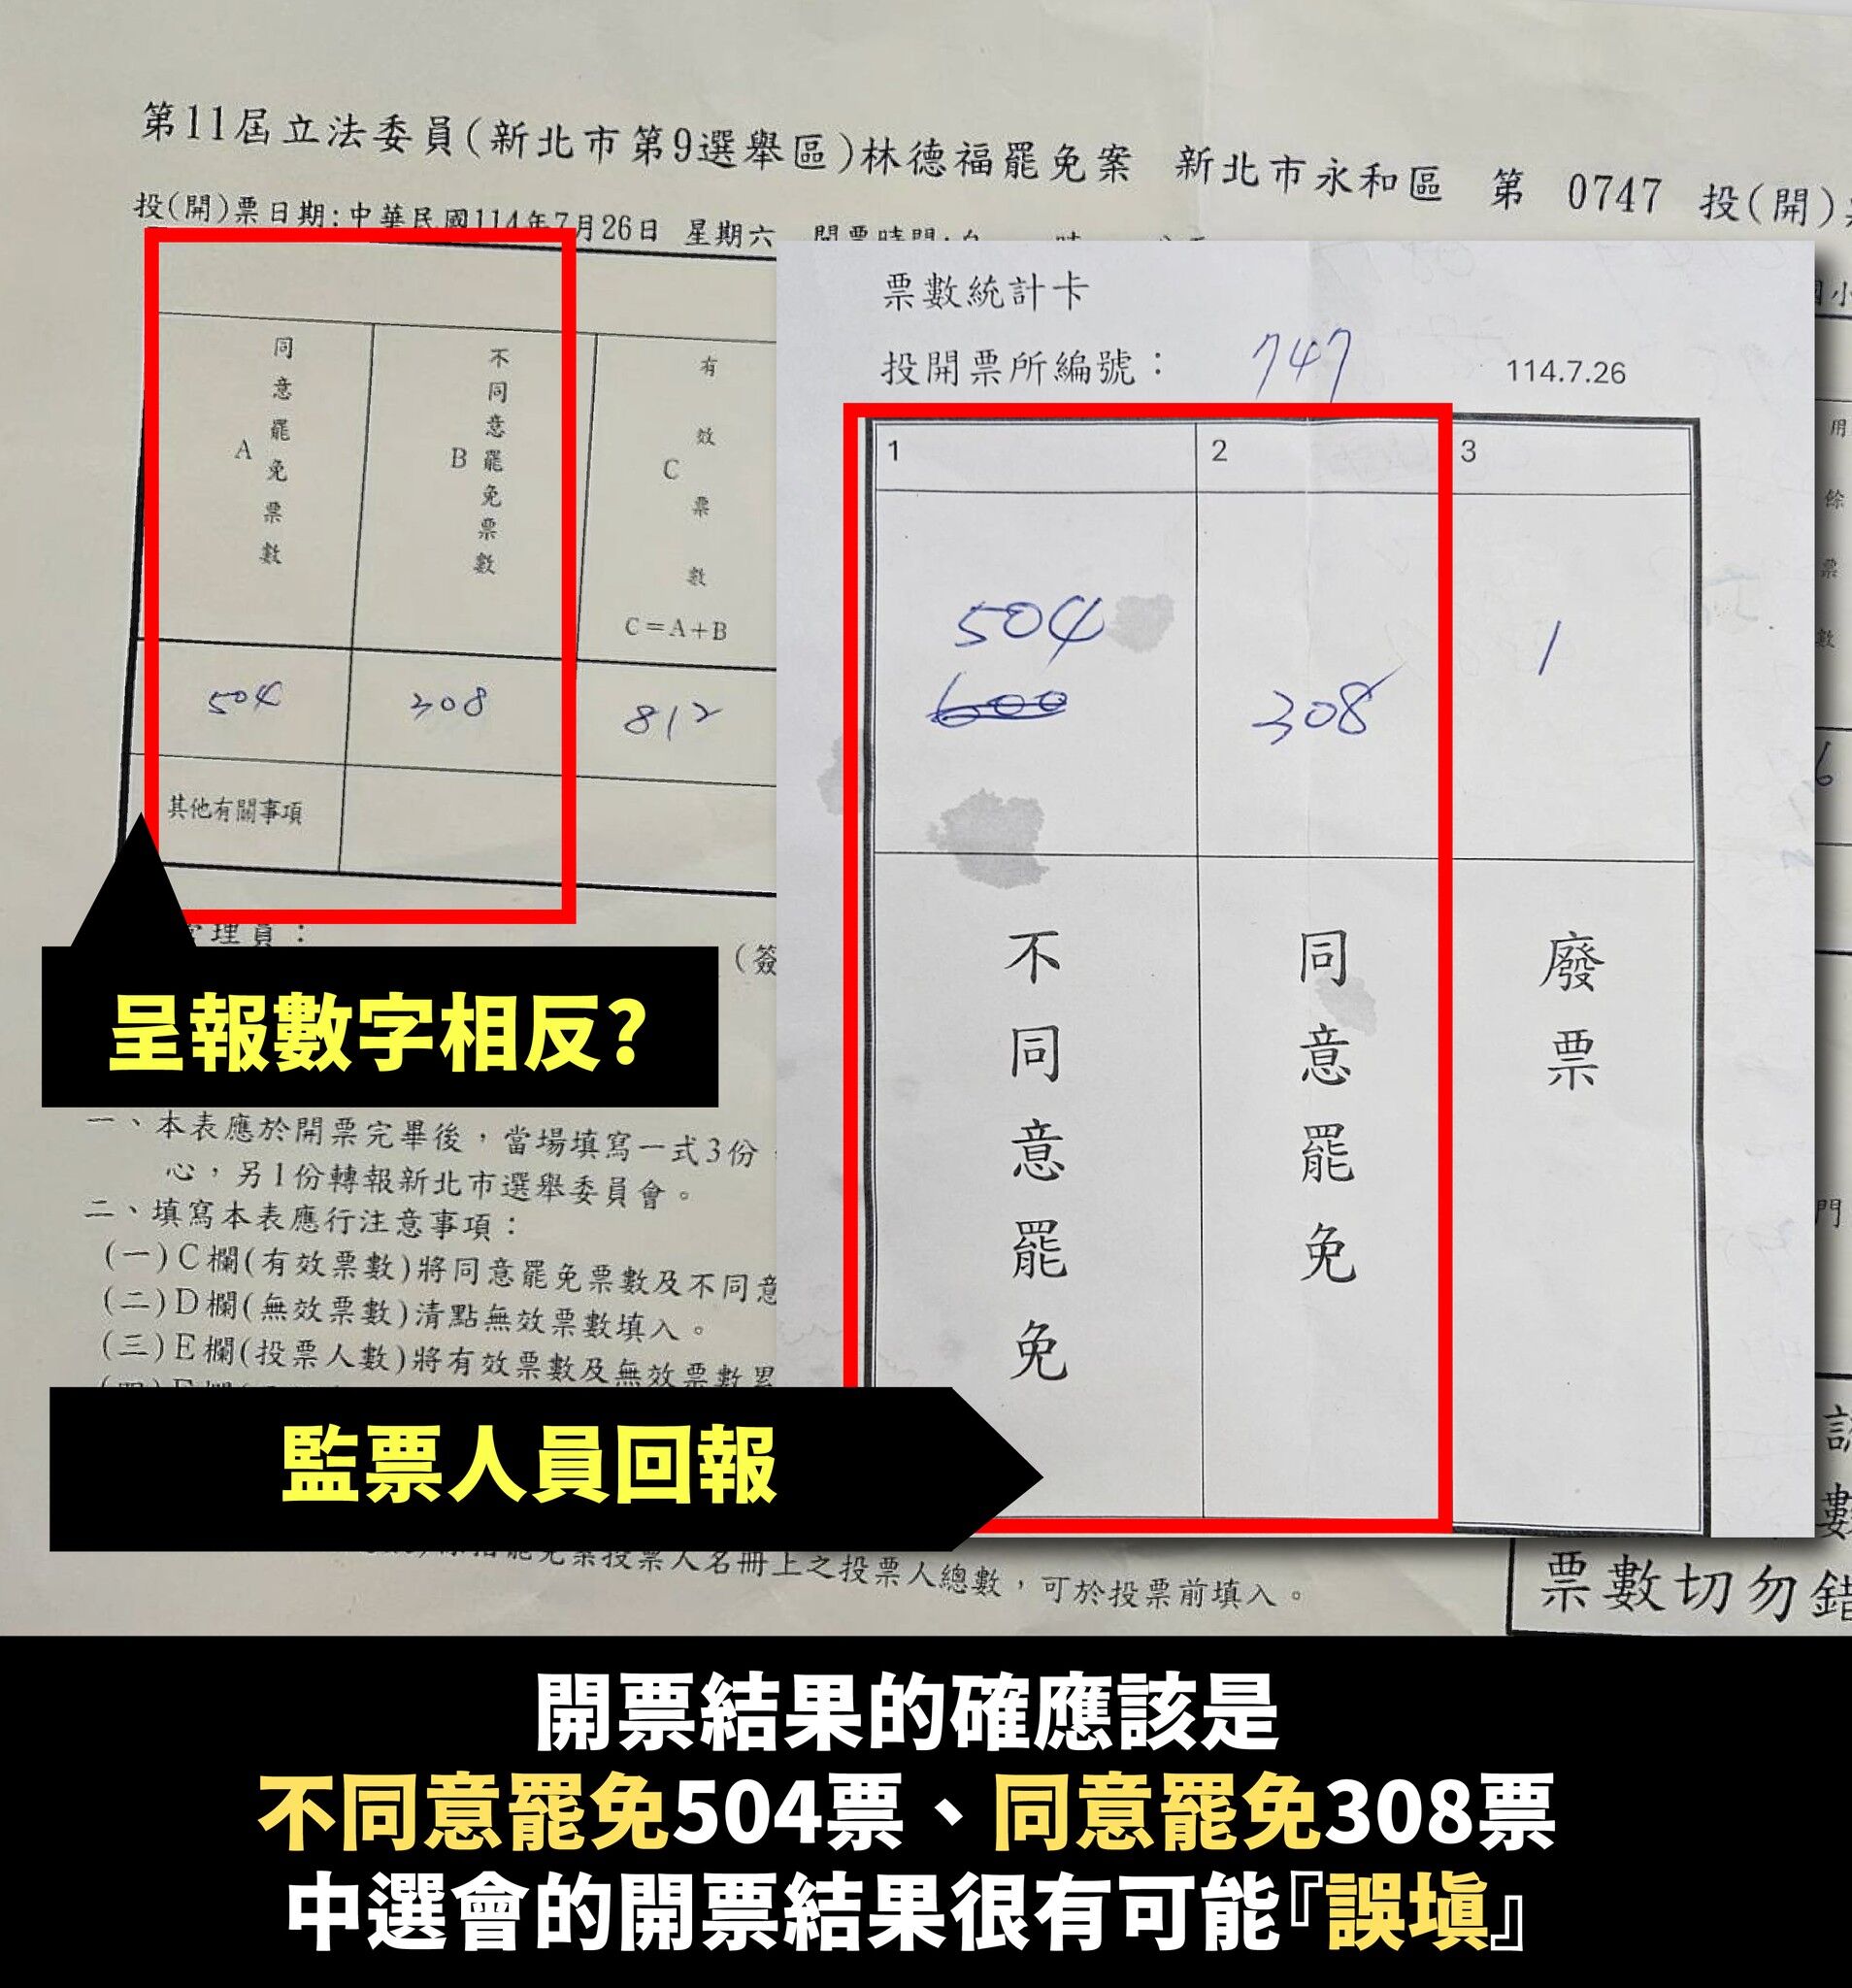 第11屆立法委員(新北市第9選舉區)林德福罷免案 新北市永和區 第 0747 投(開)
投(開)票日期:中華民國114年7月26日 星期六 開票時間:自
同意罷免票數
A
不同意罷免票數
B
有效票數
C
C=A+B
504
308
812
其他有關事項
管理員：
(簽
呈報數字相反?
一、本表應於開票完畢後，當場填寫一式3份
心，另1份轉報新北市選舉委員會。
二、填寫本表應行注意事項：
(一)C欄(有效票數)將同意罷免票數及不同意
(二)D欄(無效票數)清點無效票數填入。
(三)E欄(投票人數)將有效票數及無效票數累
監票人員回報
罷免案投票人名冊上之投票人總數，可於投票前填入。
票數統計卡
投開票所編號： 747 114.7.26
1 2 3
504
600
308
1
不同意罷免
同意罷免
廢票
用餘票數
6
門
數
票數切勿錯
開票結果的確應該是
不同意罷免504票、同意罷免308票
中選會的開票結果很有可能『誤塡』